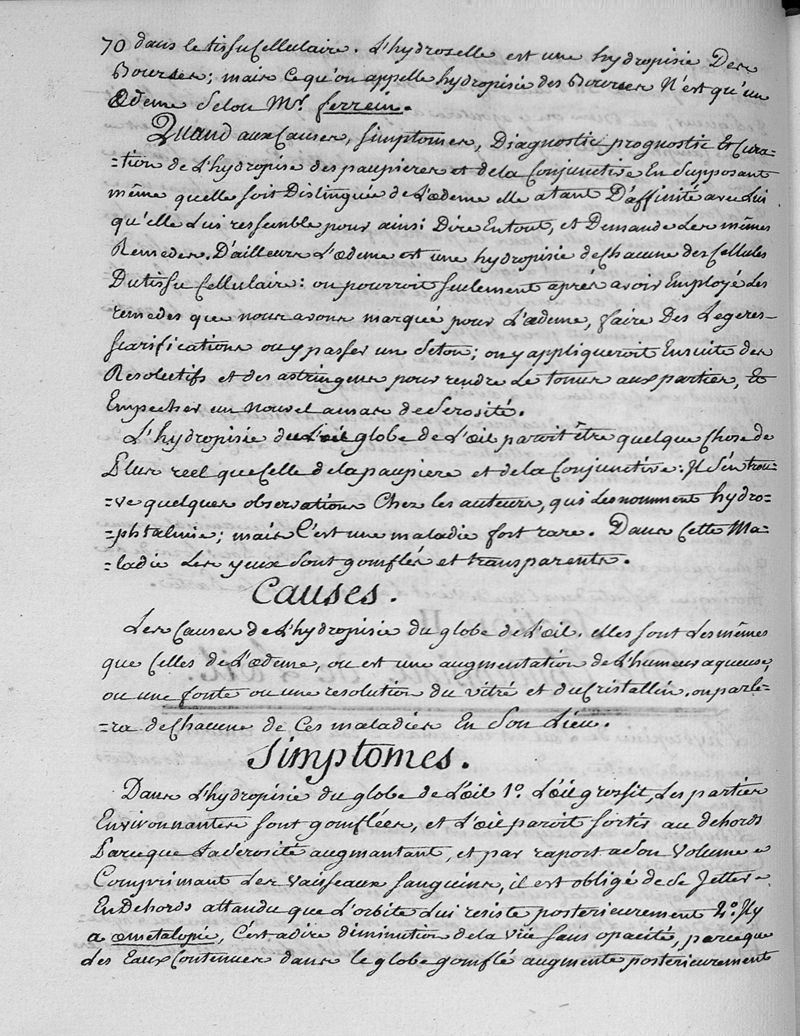 70 dans le tissu Cellulaire. L'hydroselle est une hydropisie Des
Bourses; mais Ce qu'on appelle hydropisie des Bourses N'est qu'un
Œdeme Selon Mr. ferrein.
Quand aux Causes, Simptomes, Diagnostic prognostic Et Cura-
-tion de L'hydropisie des paupieres et de la Conjunctive En Supposant
même quelle soit Distinguée de L'œdeme elle a tant D'affinité avec Lui
qu'elle Lui ressemble pour ainsi Dire Entout, et Demande Les mêmes
Remedes. D'ailleurs L'œdeme est une hydropisie de Chacune des Cellules
Du tissu Cellulaire: on pourroit seulement après avoir Employé Les
remedes que nous avons marqué pour L'œdeme, faire Des Legeres
Scarifications ou y passer un Seton; on y appliqueroit Ensuite des
Resolutifs et des astringens pour rendre Le tonus aux parties, Et
Empecher un Nouvel amas de Serosité.
L'hydropisie du L'œil globe de L'œil paroit être quelque Chose de
Plus reel que Celle de la paupiere et de la Conjunctive: Il S'en trou-
-ve quelques observations Chez les auteurs, qui Les nomment hydro-
-phtalmie; mais C'est une maladie fort rare. Dans Cette Ma-
-ladie Les yeux sont gonflés et transparents.
Causes.
Les Causes de L'hydropisie du globe de L'œil. elles sont Les mêmes
que Celles de L'œdeme, ou est une augmentation de L'humeur aqueuse,
ou une fonte ou une resolution du vitré et du Cristallin. on parle-
-ra de Chacune de Ces maladies En Son Lieu.
Simptomes.
Dans L'hydropisie du globe de L'œil 1o. L'œil grossit, Les parties
Environnantes sont gonflées, et L'œil paroit sortir au dehors
Parceque La Serosité augmantant, et par raport a Son Volume
Comprimant Les vaisseaux sanguins, il est obligé de Se Jetter
En Dehors attandu que L'orbite Lui resiste posterieurement 2o. Il y
a ametalopie, C'est a dire diminution de la Vüe sans opacité, parceque
des Eaux Contenues dans le globe gonflé augmente posterieurement